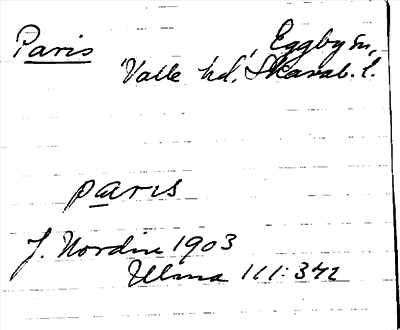 Paris Eggby sn,
Valle hd, Skarab. l.
paris
J. Nordin 1903
Ulma 111:342